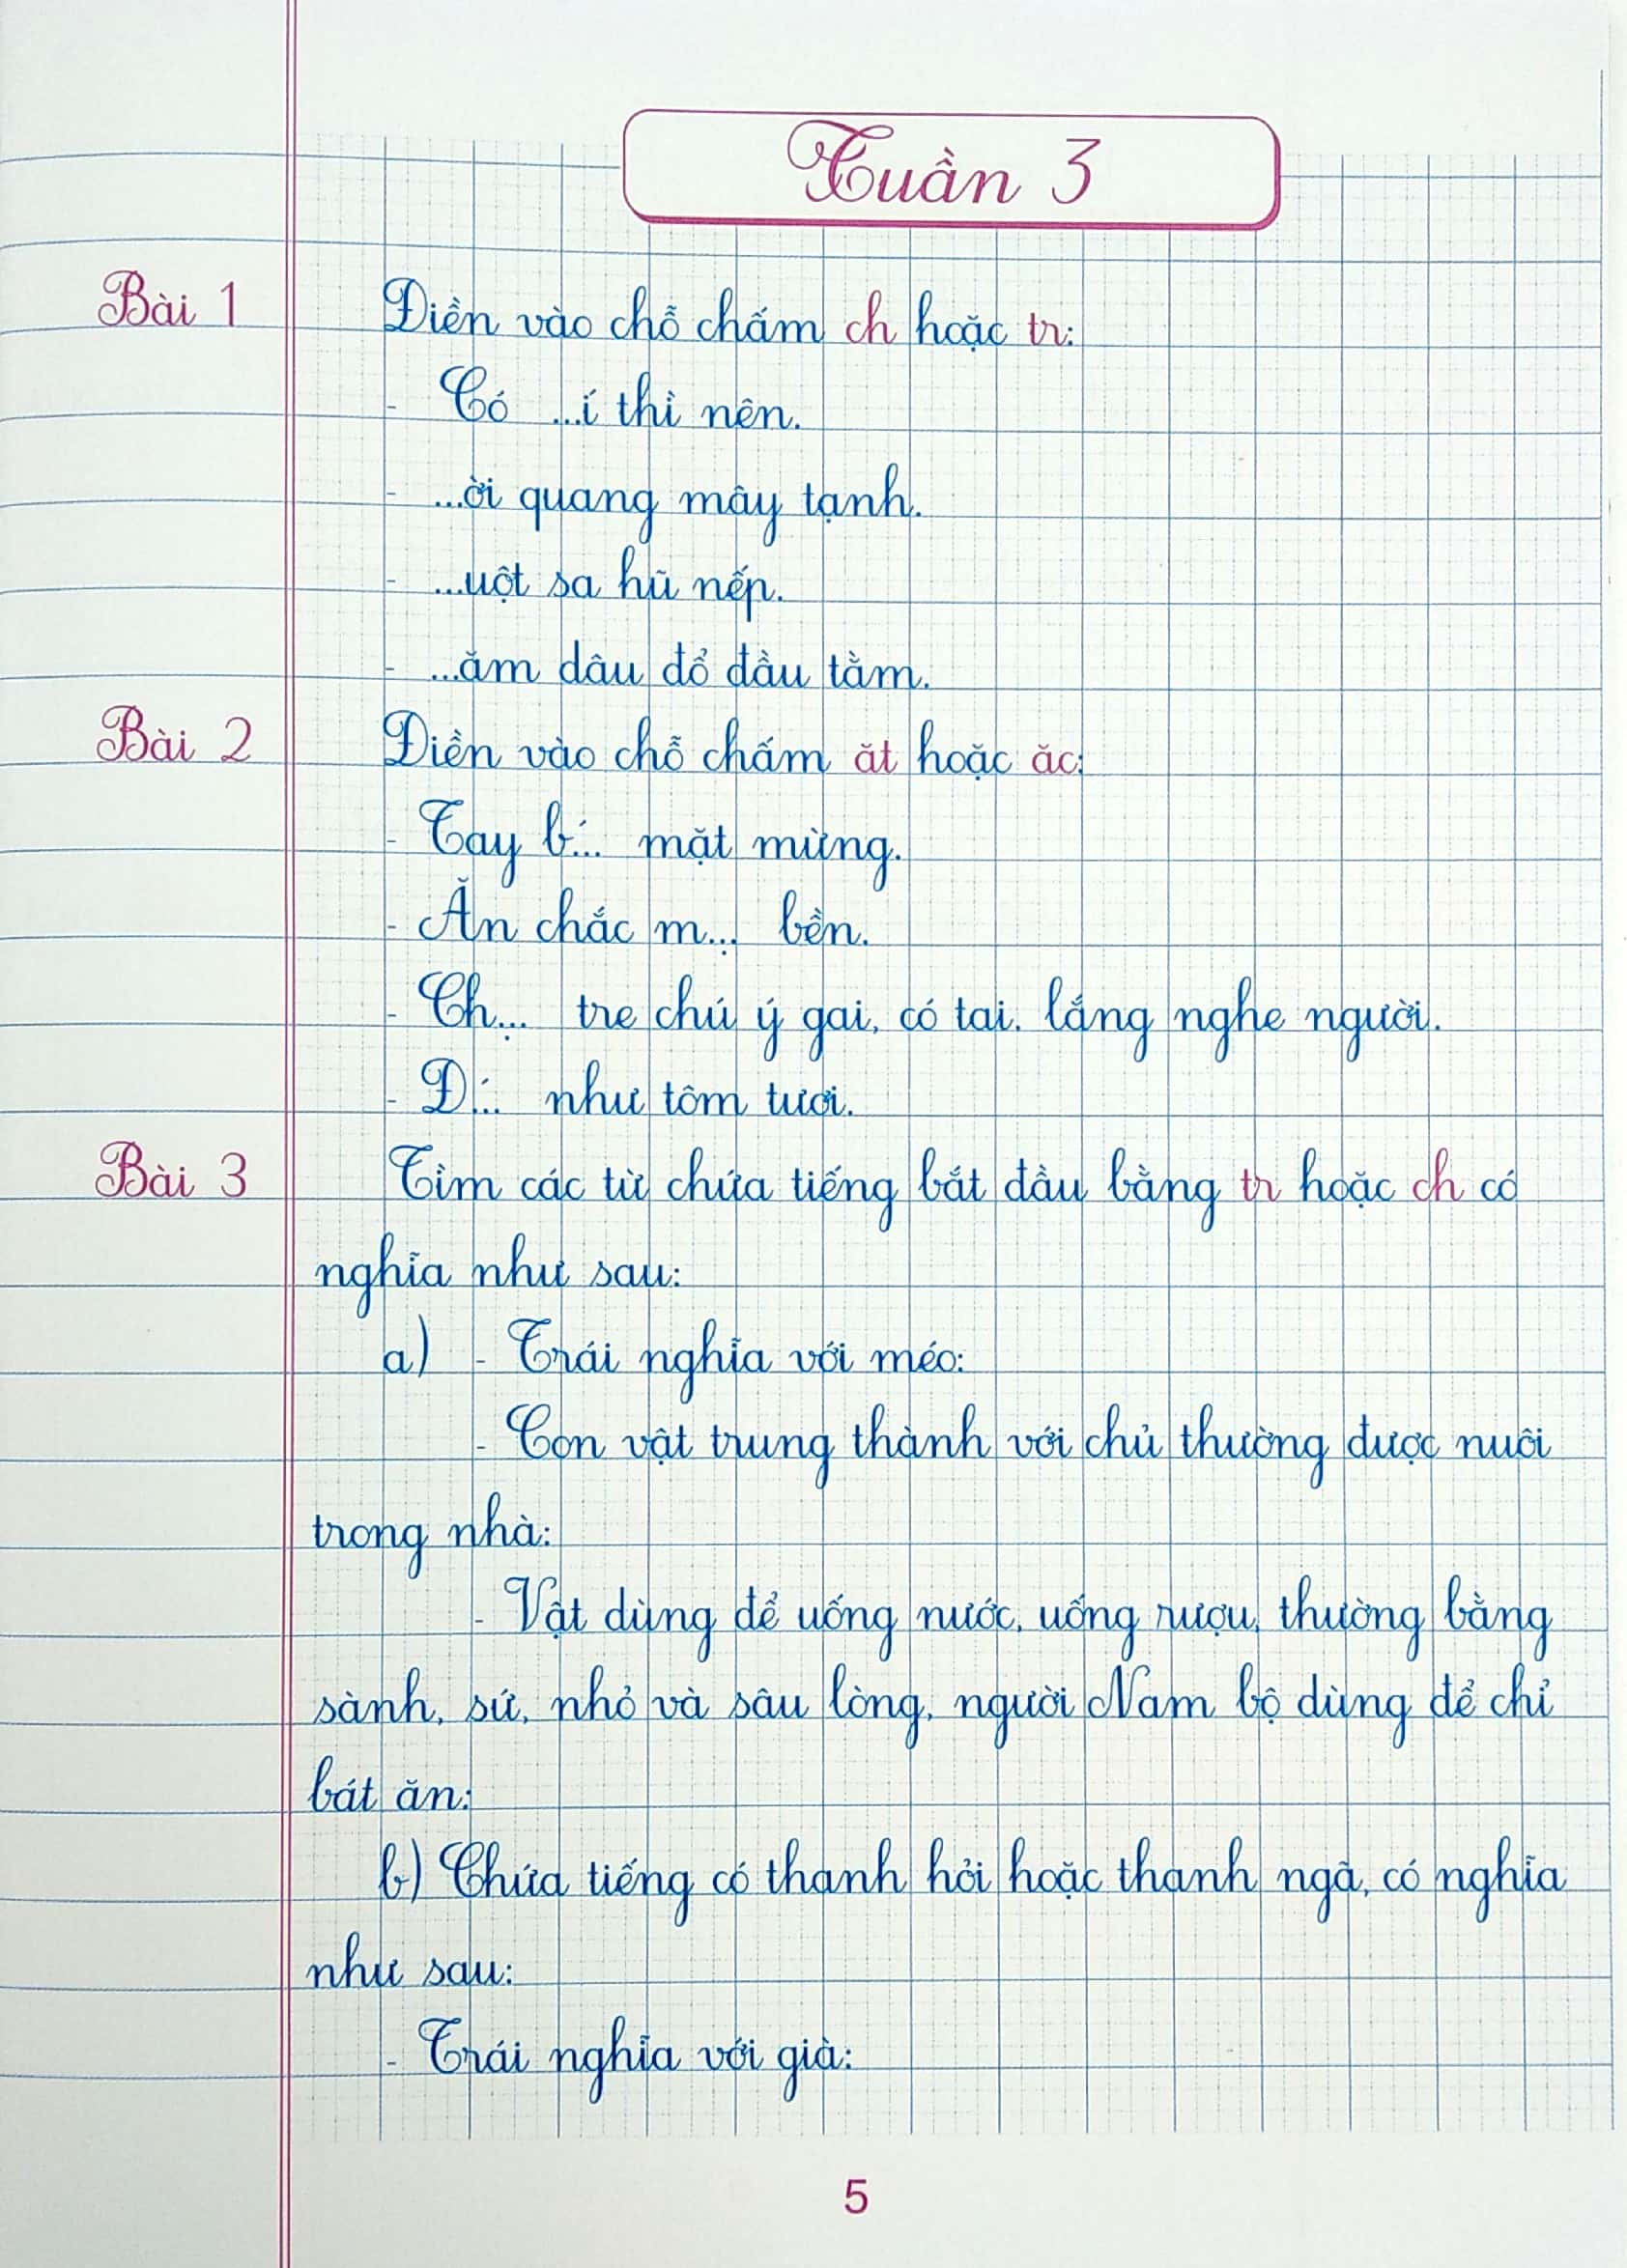 Tuần 3
Bài 1 Điền vào chỗ chấm ch hoặc tr:
- Có ...í thì nên.
- ...ời quang mây tạnh.
- ...uột sa hũ nếp.
- ...ăm dâu đổ đầu tằm.
Bài 2 Điền vào chỗ chấm ăt hoặc ăc:
- Tay b... mặt mừng.
- Ăn chắc m... bền.
- Ch... tre chú ý gai, có tai. lắng nghe người.
- Đ... như tôm tươi.
Bài 3 Tìm các từ chứa tiếng bắt đầu bằng tr hoặc ch có
nghĩa như sau:
a) - Trái nghĩa với méo:
- Con vật trung thành với chủ thường được nuôi
trong nhà:
- Vật dùng để uống nước, uống rượu, thường bằng
sành, sứ, nhỏ và sâu lòng, người Nam bộ dùng để chỉ
bát ăn:
b) Chứa tiếng có thanh hỏi hoặc thanh ngã, có nghĩa
như sau:
- Trái nghĩa với già:
5